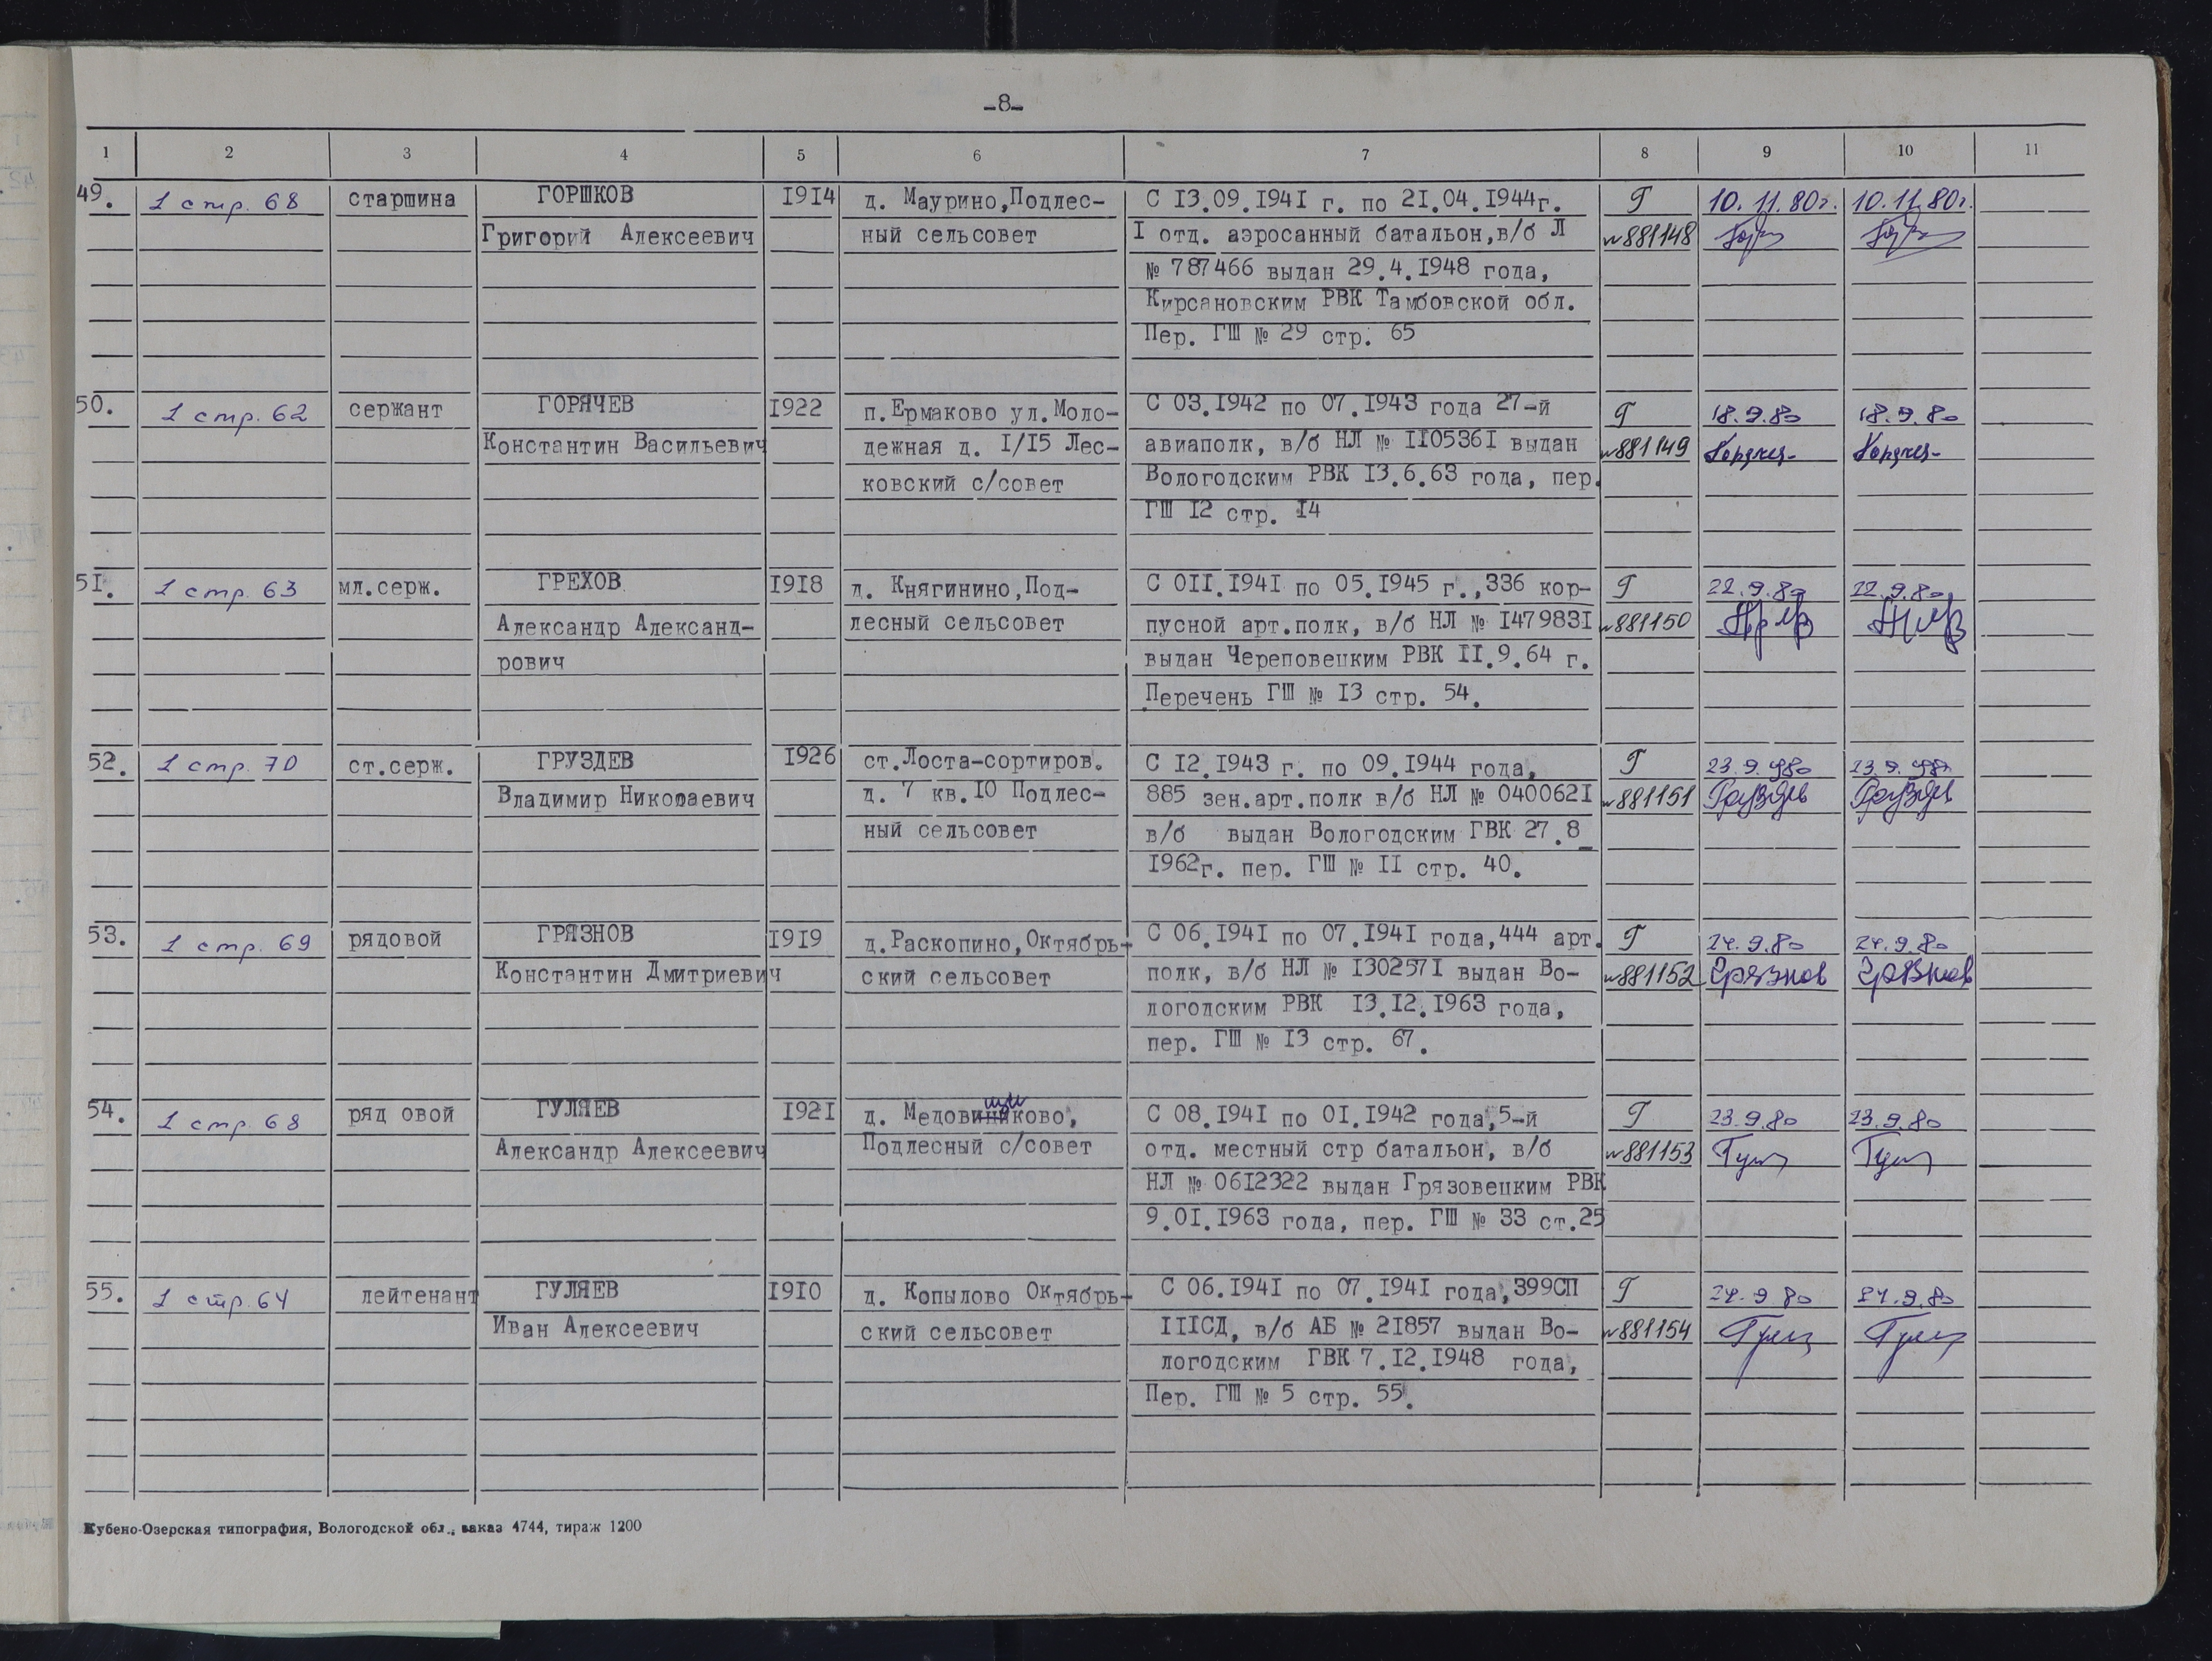 -8-
1 2 3 4 5 6 7 8 9 10 11
49. 1 стр. 68 старшина ГОРШКОВ 1914 д. Маурино,Подлес- С 13.09.1941 г. по 21.04.1944г. Г 10.11.80г. 10.11.80г.
Григорий Алексеевич ный сельсовет I отд. аэросанный батальон,в/б Л №881148
№ 787466 выдан 29.4.1948 года,
Кирсановским РВК Тамбовской обл.
Пер. ГШ № 29 стр. 65
50. 1 стр. 62 сержант ГОРЯЧЕВ 1922 п.Ермаково ул.Моло- С 03.1942 по 07.1943 года 27-й Г 18.9.80 18.9.80
Константин Васильевич дежная д. I/15 Лес- авиаполк, в/б НЛ № 1105361 выдан №881149
ковский с/совет Вологодским РВК 13.6.63 года, пер.
ГШ 12 стр. 14
51. 1 стр. 63 мл.серж. ГРЕХОВ 1918 д. Княгинино,Под- С 011.1941 по 05.1945 г.,336 кор- Г 22.9.80 22.9.80
Александр Александ- лесный сельсовет пусной арт.полк, в/б НЛ № 1479831 №881150
рович выдан Череповецким РВК 11.9.64 г.
Перечень ГШ № 13 стр. 54.
52. 1 стр. 70 ст.серж. ГРУЗДЕВ 1926 ст.Лоста-сортиров. С 12.1943 г. по 09.1944 года, Г 23.9.980 23.9.980
Владимир Николаевич д. 7 кв.10 Подлес- 885 зен.арт.полк в/б НЛ № 0400621 №881151 Груздев Груздев
ный сельсовет в/б выдан Вологодским ГВК 27.8
1962г. пер. ГШ № 11 стр. 40.
53. 1 стр. 69 рядовой ГРЯЗНОВ 1919 д.Раскопино,Октябрь- С 06.1941 по 07.1941 года,444 арт. Г 24.9.80 24.9.80
Константин Дмитриевич ский сельсовет полк, в/б НЛ № 1302571 выдан Во- №881152 Грязнов Грязнов
логодским РВК 13.12.1963 года,
пер. ГШ № 13 стр. 67.
54. 1 стр. 68 ряд овой ГУЛЯЕВ 1921 д. Медовиниково, С 08.1941 по 01.1942 года,5-й Г 23.9.80 23.9.80
Александр Алексеевич Подлесный с/совет отд. местный стр батальон, в/б №881153
НЛ № 0612322 выдан Грязовецким РВК
9.01.1963 года, пер. ГШ № 33 ст.25
55. 1 стр. 64 лейтенант ГУЛЯЕВ 1910 д. Копылово Октябрь- С 06.1941 по 07.1941 года,399СП Г 24.9.80 24.9.80
Иван Алексеевич ский сельсовет 111СД, в/б АБ № 21857 выдан Во- №881154
логодским ГВК 7.12.1948 года,
Пер. ГШ № 5 стр. 55.
Кубено-Озерская типография, Вологодской обл., заказ 4744, тираж 1200